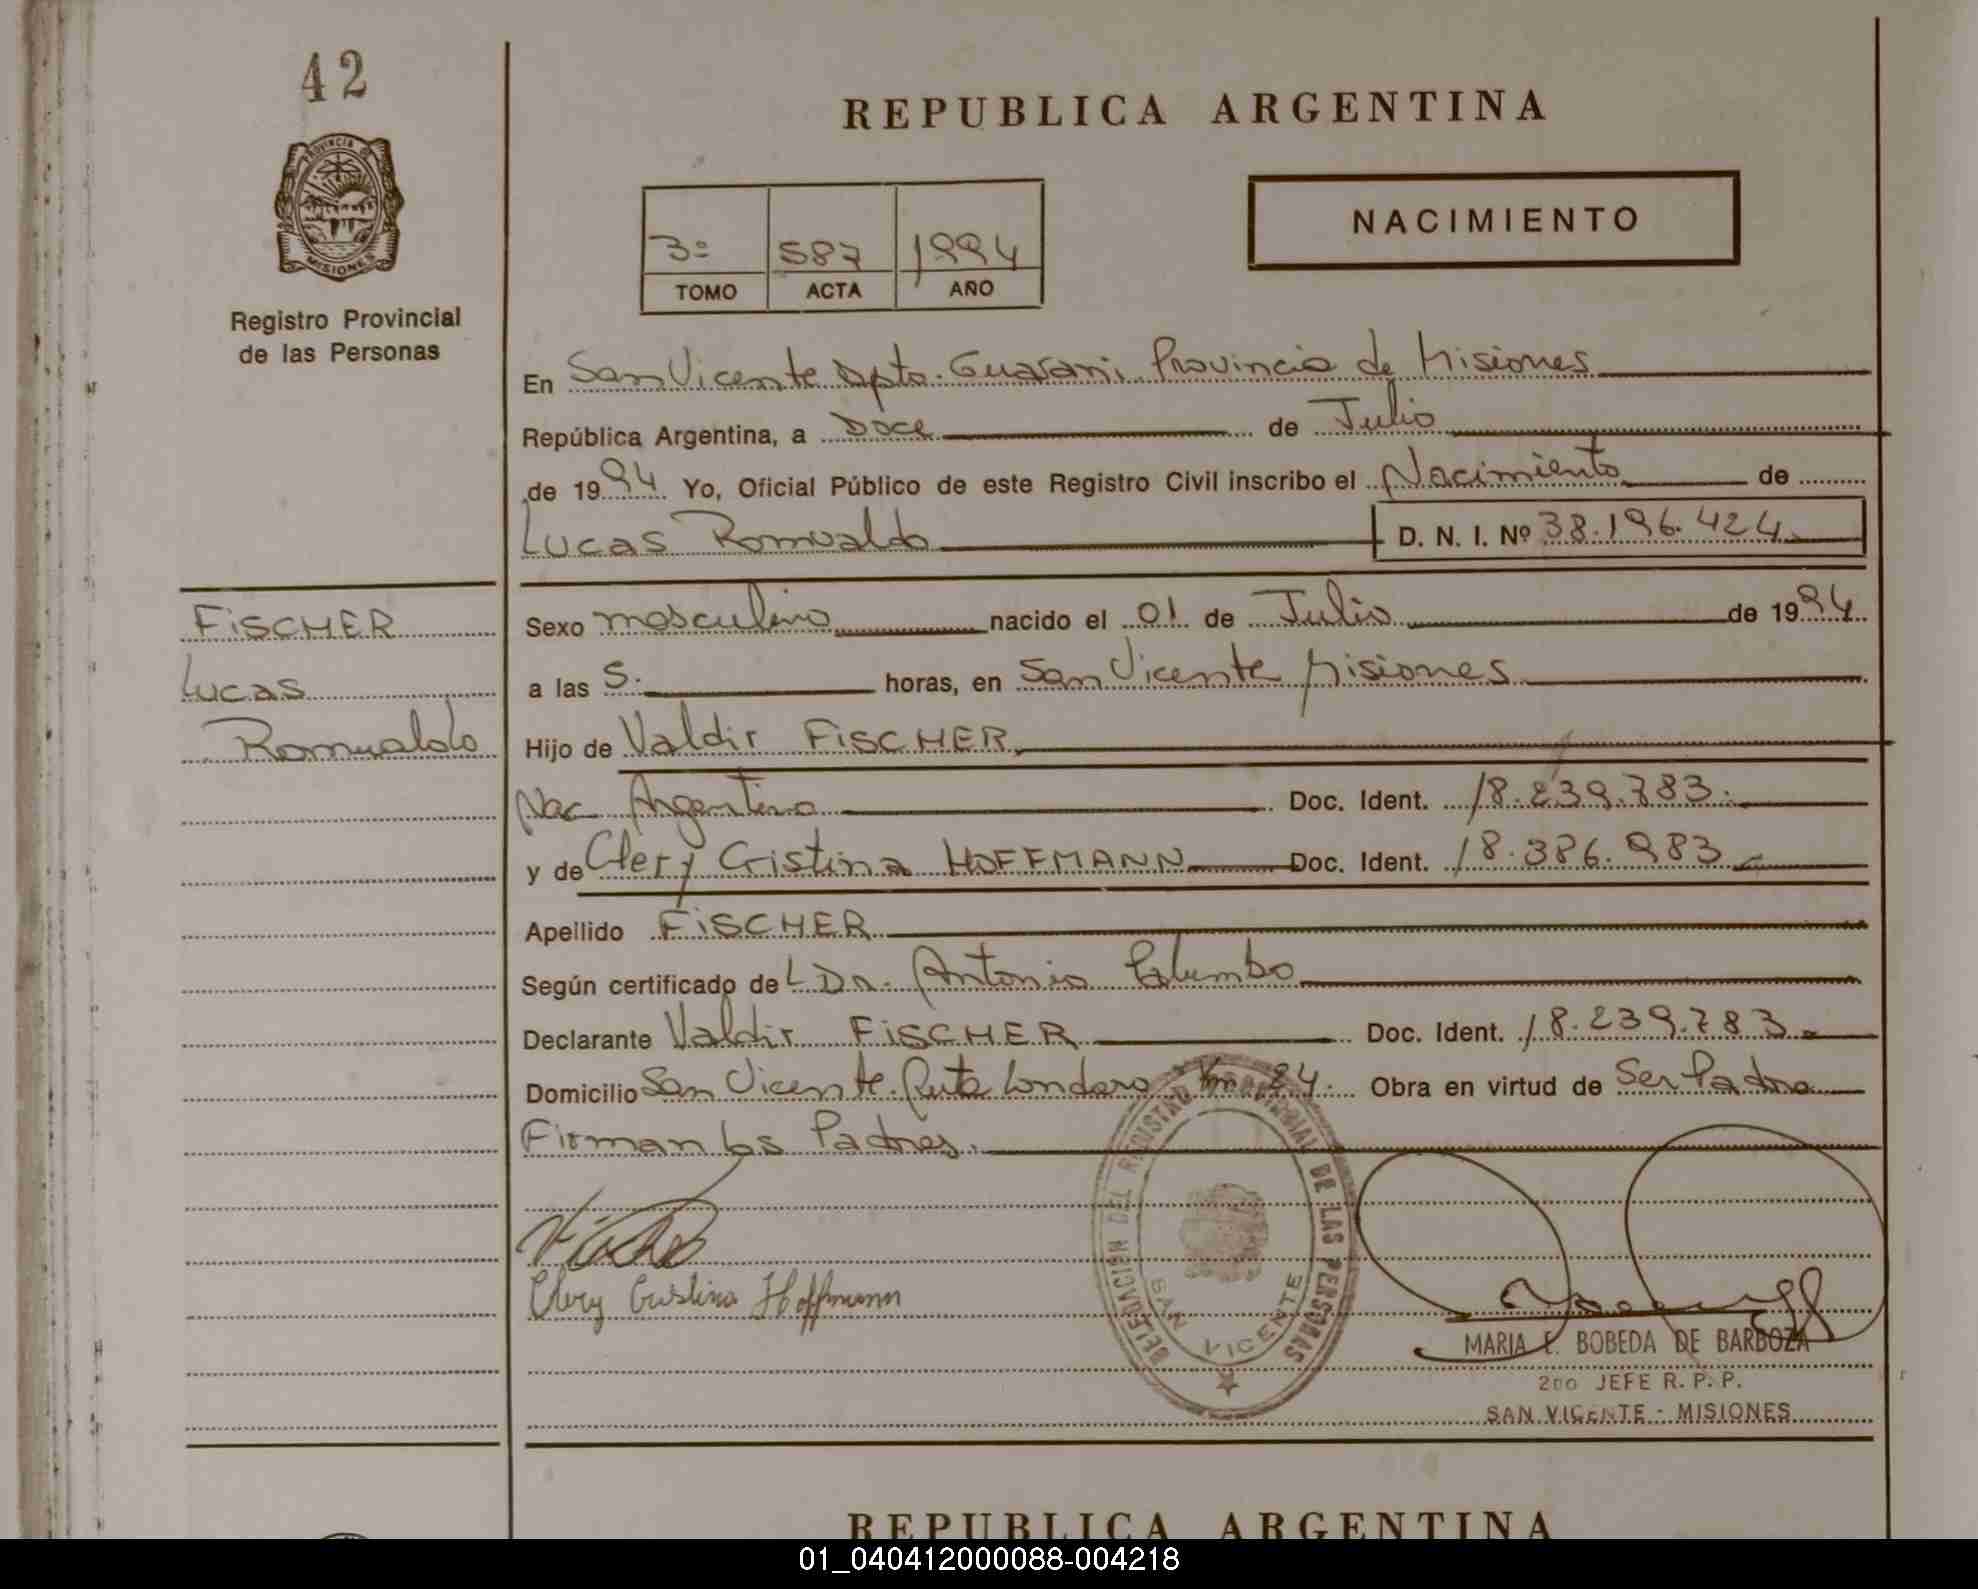 42
REPUBLICA ARGENTINA
PROVINCIA DE
MISIONES
Registro Provincial
de las Personas
3º 587 1994
TOMO ACTA AÑO
NACIMIENTO
En San Vicente Dpto. Guarani Provincia de Misiones
República Argentina, a Doce de Julio
de 1994 Yo, Oficial Público de este Registro Civil inscribo el Nacimiento de
Lucas Romualdo D. N. I. Nº 38.196.424
FiSCHER
Lucas
Romualdo
Sexo masculino nacido el 01 de Julio de 1994
a las 5. horas, en San Vicente Misiones
Hijo de Valdir FiSCHER
Nac Argentino Doc. Ident. 18.239.783.
y de Clery Cristina HOFFMANN Doc. Ident. 18.386.983
Apellido FiSCHER
Según certificado deL Dr. Antonio Columbo
Declarante Valdir FiSCHER Doc. Ident. 18.239.783
Domicilio San Vicente. Ruta Londero Km 24. Obra en virtud de Ser Padre
Firman los Padres.
Clery Cristina Hoffmann
DELEGACION DEL REGISTRO PROVINCIAL DE LAS PERSONAS
SAN VICENTE
MARIA E. BOBEDA DE BARBOZA
2DO JEFE R. P. P.
SAN VICENTE - MISIONES
REPUBLICA ARGENTINA
01_040412000088-004218